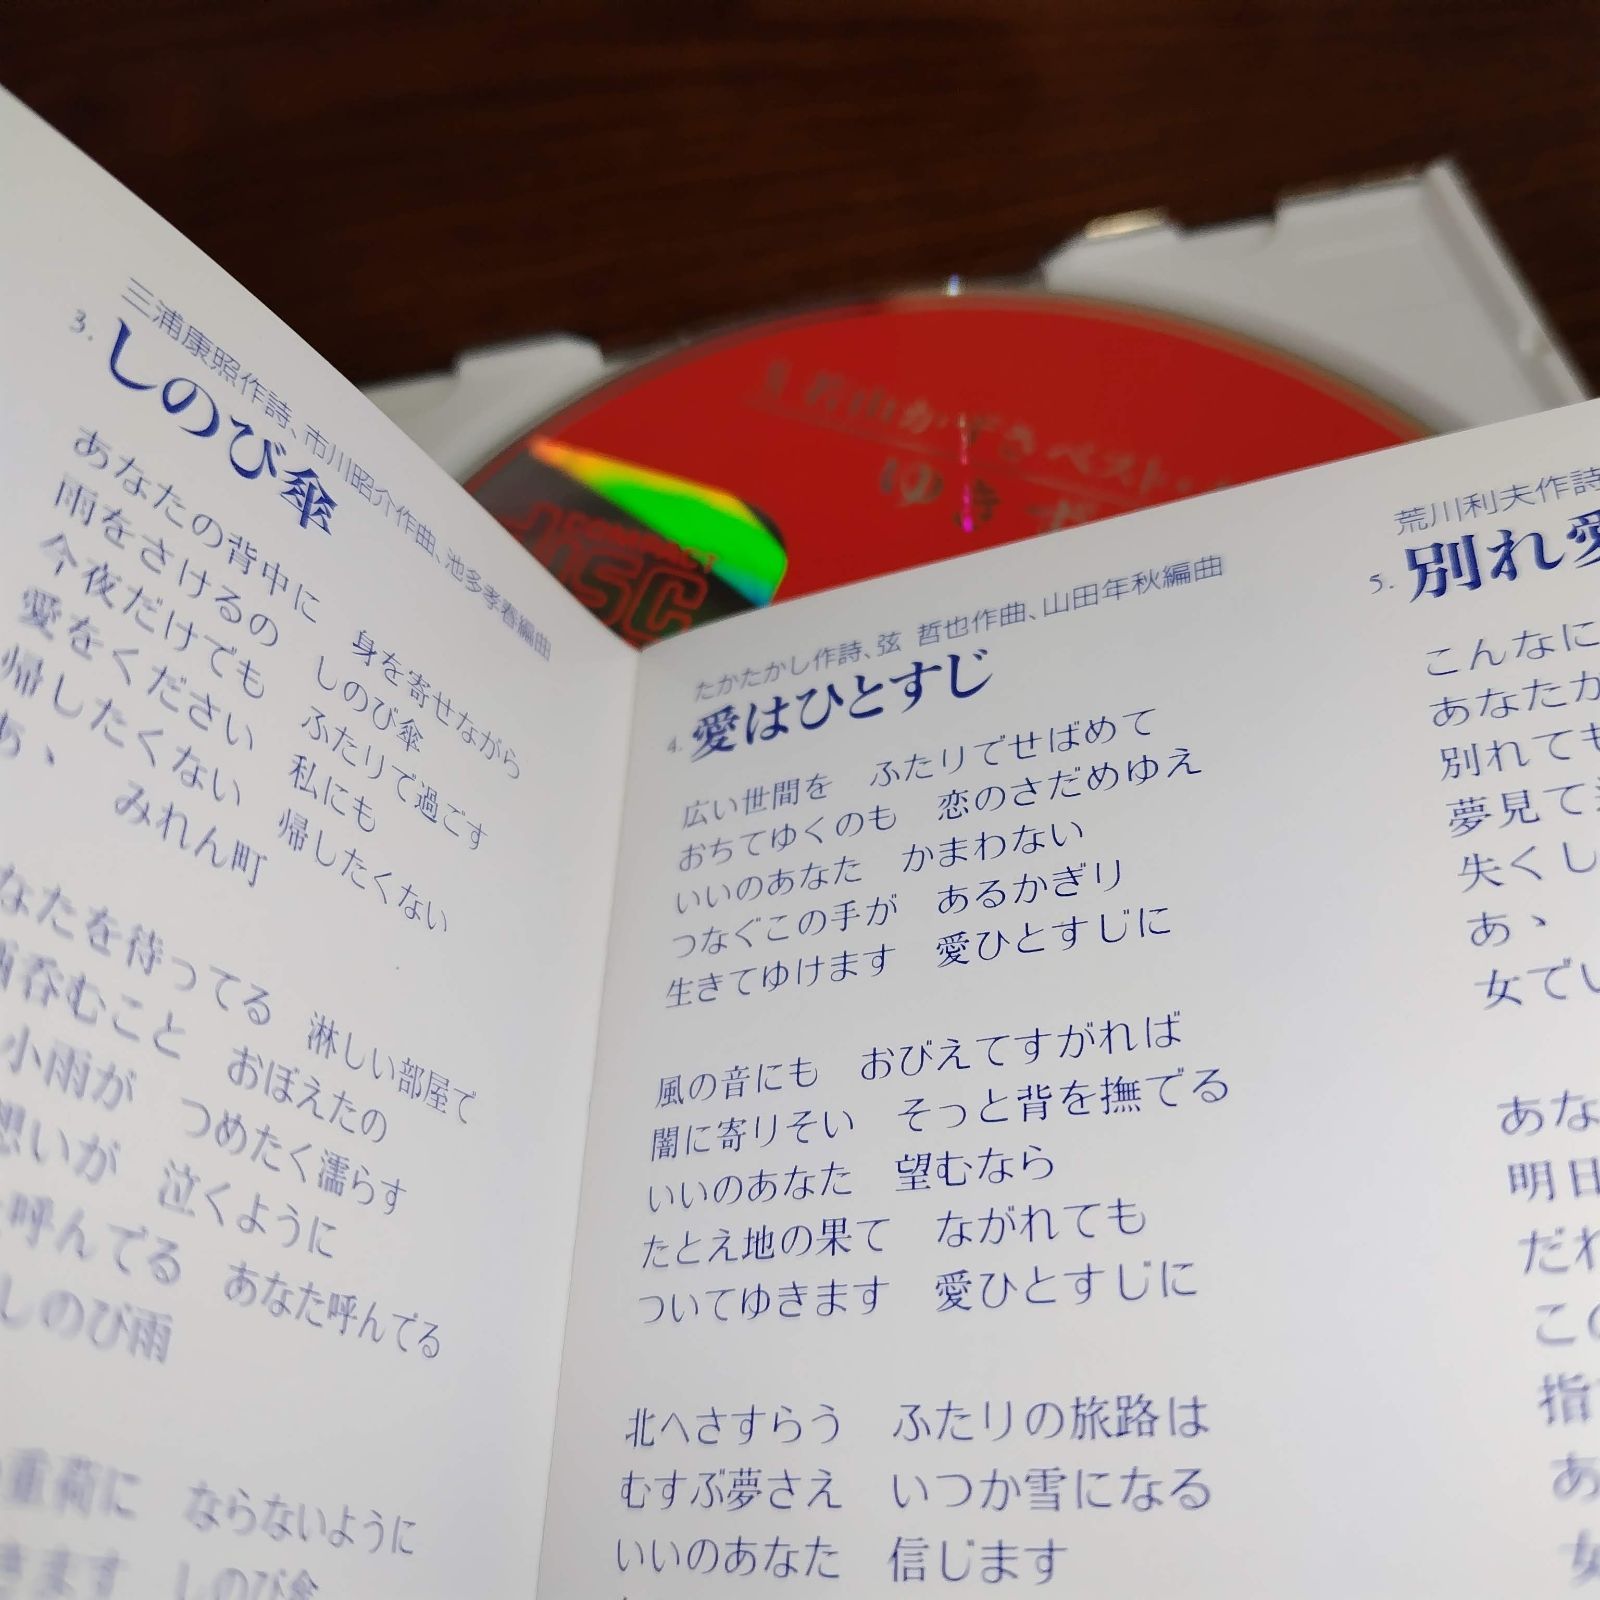 三浦康照作詩、市川昭介作曲、池多孝春編曲
3. しのび傘
あなたの背中に 身を寄せながら
雨をさけるの しのび傘
今夜だけでも ふたりで過ごす
愛をください 私にも
帰したくない 帰したくない
あゝ みれん町
なたを待ってる 淋しい部屋で
酒呑むこと おぼえたの
小雨が つめたく濡らす
想いが 泣くように
呼んでる あなた呼んでる
しのび雨
重荷に ならないように
きます しのび傘
たかたかし作詩、弦 哲也作曲、山田年秋編曲
4. 愛はひとすじ
広い世間を ふたりでせばめて
おちてゆくのも 恋のさだめゆえ
いいのあなた かまわない
つなぐこの手が あるかぎり
生きてゆけます 愛ひとすじに
風の音にも おびえてすがれば
闇に寄りそい そっと背を撫でる
いいのあなた 望むなら
たとえ地の果て ながれても
ついてゆきます 愛ひとすじに
北へさすらう ふたりの旅路は
むすぶ夢さえ いつか雪になる
いいのあなた 信じます
荒川利夫作詩
5. 別れ愛
こんなに
あなたが
別れても
夢見て
失くし
あゝ
女でい
あな
明日
だれ
この
指
あ
女
若山かずさベスト
ゆき
COMPACT
DISC